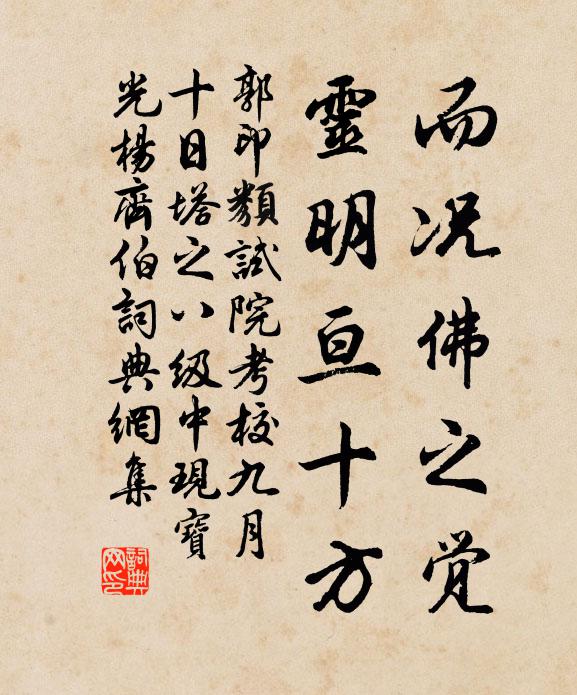 而况佛之觉
靈明亘十方
郭印類試院考校九月
十日塔之八級中現寶
光楊齊伯詞典網集
詞典网印